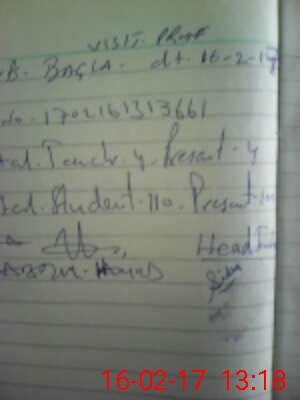 VISIT. PROOF
B. BAGLA. dt. 16-2-17
No. 170216131 3661
tal. Teachr. 4. Present. 4
tal. Student. 110. Present.
Head
16-02-17 13:18